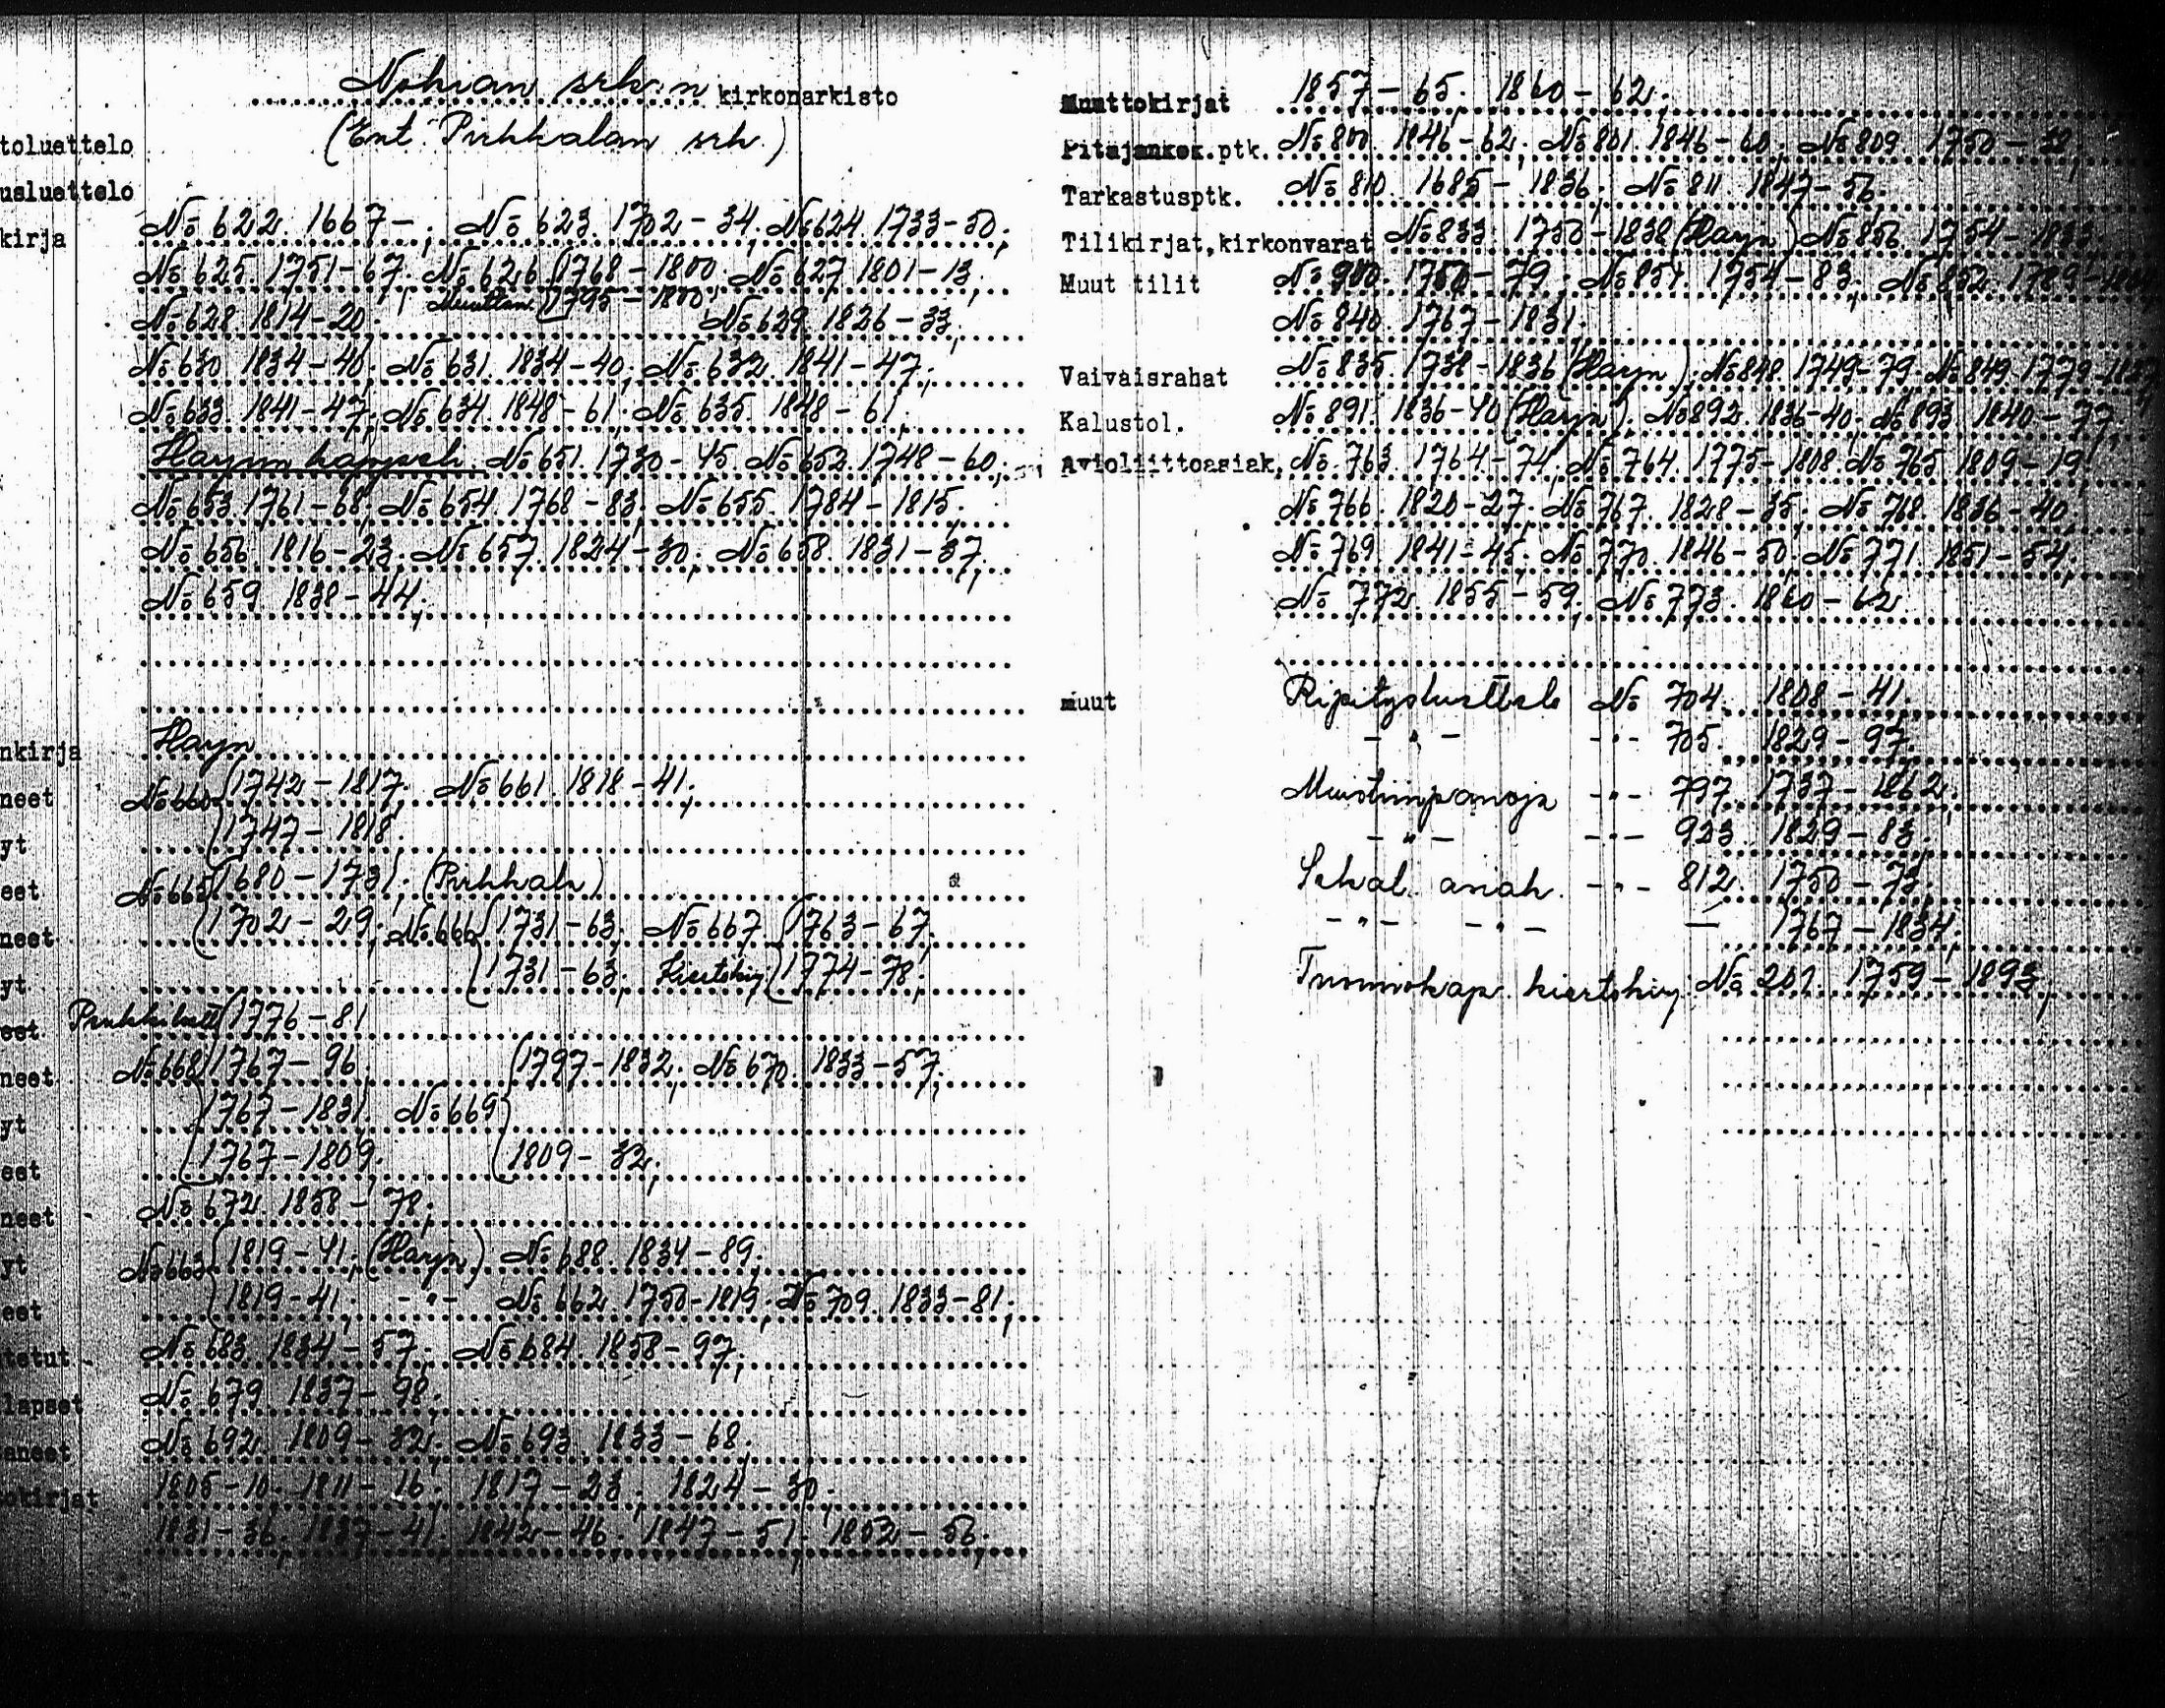 Nokian srk:n kirkonarkisto
(Ent. Pirkkalan srk.)
toluettelo
usluettelo
kirja No 622. 1667- ; No 623. 1702-34; No 624. 1733-50;
No 625. 1751-67; No 626 (1768-1800; No 627 1801-13;
No 628. 1814-20; Muuttan. (1795-1800; No 629. 1826-33;
No 630 1834-40; No 631. 1834-40; No 632. 1841-47;
No 633. 1841-47; No 634. 1848-61; No 635. 1848-61;
Harjun kappeli. No 651. 1730-45. No 652. 1748-60;
No 653. 1761-68; No 654. 1768-83; No 655. 1784-1815;
No 656 1816-23; No 657. 1824-30; No 658. 1831-37;
No 659 1838-44;
nkirja Harju
neet No 660 (1742-1817; No 661. 1818-41;
yt (1747-1818.
eet No 665 (1680-1731; (Pirkkala)
neet (1702-29; No 666 (1731-63; No 667 (1763-67;
yt (1731-63; Kiertokirj. (1774-78;
eet (1776-81
neet No 668 (1767-96 (1797-1832; No 670. 1833-57;
yt (1767-1831. No 669
eet (1767-1809; (1809-32;
neet No 672 1858-78;
yt No 663 (1819-41; (Harju) No 688. 1834-89;
eet (1819-41; -"- No 662. 1750-1819; No 709. 1833-81;
tetut No 683. 1834-57; No 684. 1858-97;
lapset No 679 1837-98;
aneet No 692. 1809-32; No 693. 1833-68;
okirjat 1805-10; 1811-16; 1817-23; 1824-30;
1831-36; 1837-41; 1842-46; 1847-51; 1852-56;
Muuttokirjat 1857-65; 1860-62;
Pitäjänkok.ptk. No 800. 1846-62; No 801. 1846-60; No 809. 1750-
Tarkastusptk. No 810. 1685-1836; No 811. 1847-56;
Tilikirjat,kirkonvarat No 833. 1750-1838 (Harju) No 856. 1754-
Muut tilit No 900. 1750-79; No 851. 1754-83; No 852. 1789-
No 840. 1767-1831;
Vaivaisrahat No 835. 1738-1836 (Harju); No 848. 1749-79 No 849. 1779-
Kalustol. No 891. 1836-40 (Harju); No 892. 1836-40; No 893 1840-77;
Avioliittoasiak. No 763 1764-74; No 764. 1775-1808. No 765 1809-19;
No 766. 1820-27; No 767. 1828-35; No 768. 1836-40;
No 769. 1841-45; No 770. 1846-50; No 771. 1851-54;
No 772. 1855-59; No 773. 1860-62
muut Ripitysluettelo No 704. 1808-41.
-"- -"- 705. 1829-97.
Muistiinpanoja -"- 797. 1737-1862.
-"- -"- 923. 1829-83.
Sekal. asiak. -"- 812. 1750-73.
-"- -"- — 1767-1834;
Tuomiokap. kiertokirj. No 201. 1759-1893;